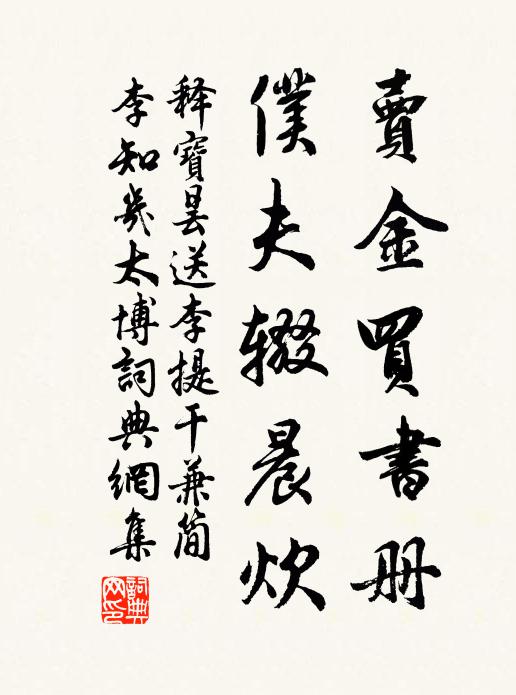 賣金買書册
僕夫辍晨炊
释寶曇送李提干兼简
李知幾太博詞典網集
詞典網印